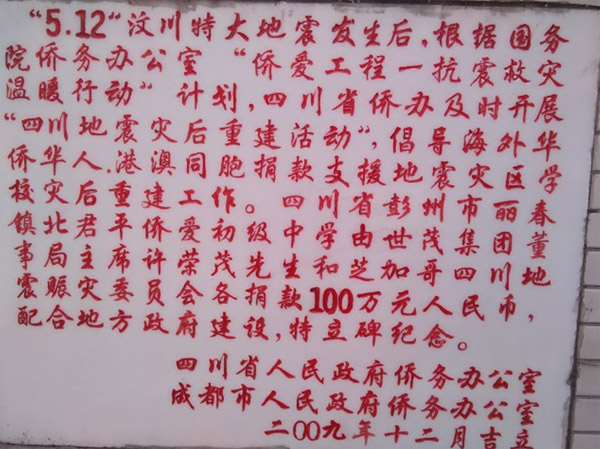 “5.12”汶川特大地震发生后，根据国务
院侨务办公室 “侨爱工程一抗震救灾
温暖行动” 计划，四川省侨办及时开展
“四川地震灾后重建活动”，倡导海外华
侨华人、港澳同胞捐款支援地震灾区学
校灾后重建工作。 四川省彭州市丽春
镇北君平侨爱初级中学由世茂集团董
事局主席许荣茂先生和芝加哥四川地
震赈灾委员会各捐款100万元人民币，
配合地方政府建设，特立碑纪念。
四川省人民政府侨务办公室
成都市人民政府侨务办公室
二〇〇九年十二月吉立